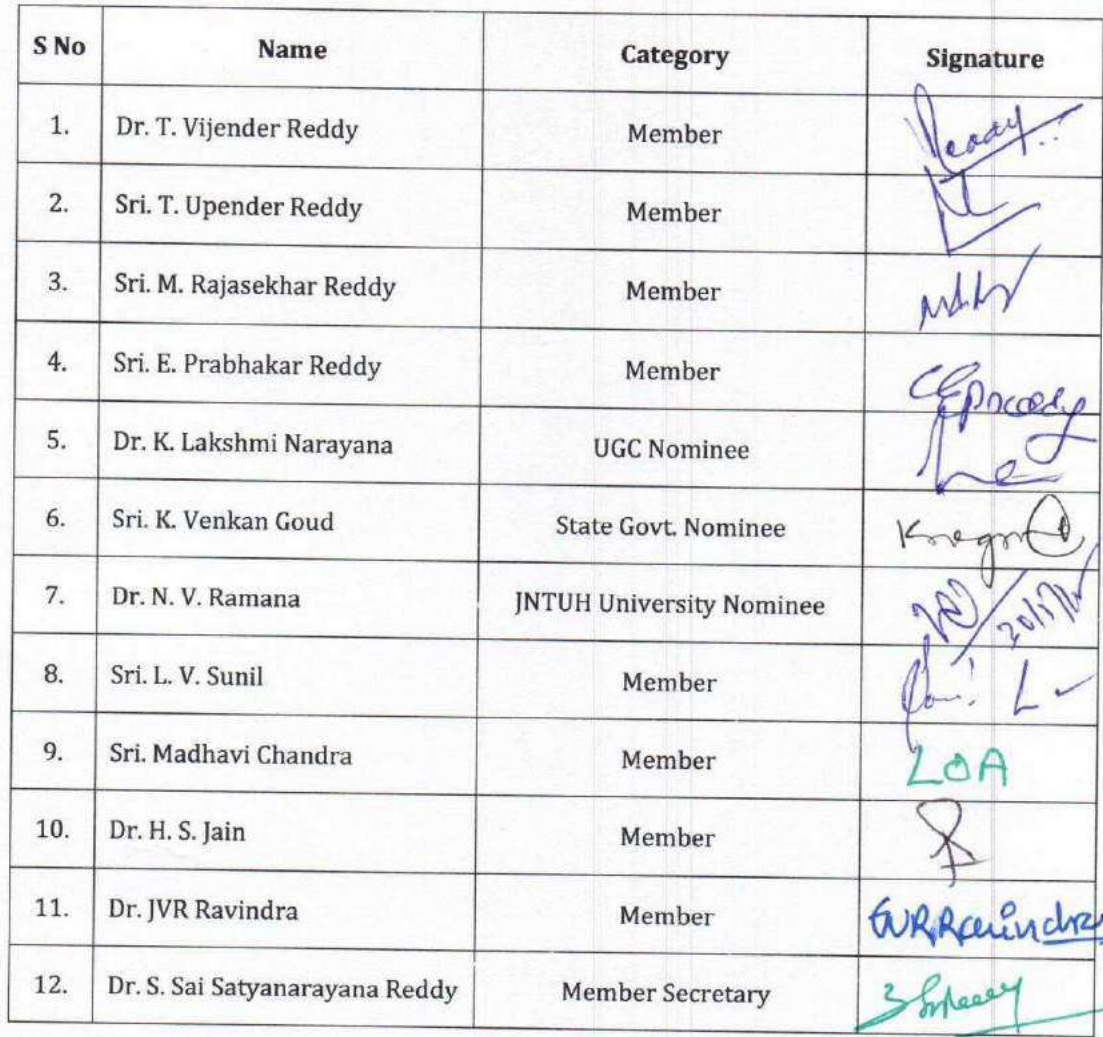 S No Name Category Signature
1. Dr. T. Vijender Reddy Member Reddy
2. Sri. T. Upender Reddy Member
3. Sri. M. Rajasekhar Reddy Member
4. Sri. E. Prabhakar Reddy Member
5. Dr. K. Lakshmi Narayana UGC Nominee
6. Sri. K. Venkan Goud State Govt. Nominee
7. Dr. N. V. Ramana JNTUH University Nominee
8. Sri. L. V. Sunil Member
9. Sri. Madhavi Chandra Member LOA
10. Dr. H. S. Jain Member
11. Dr. JVR Ravindra Member JVR Ravindra
12. Dr. S. Sai Satyanarayana Reddy Member Secretary